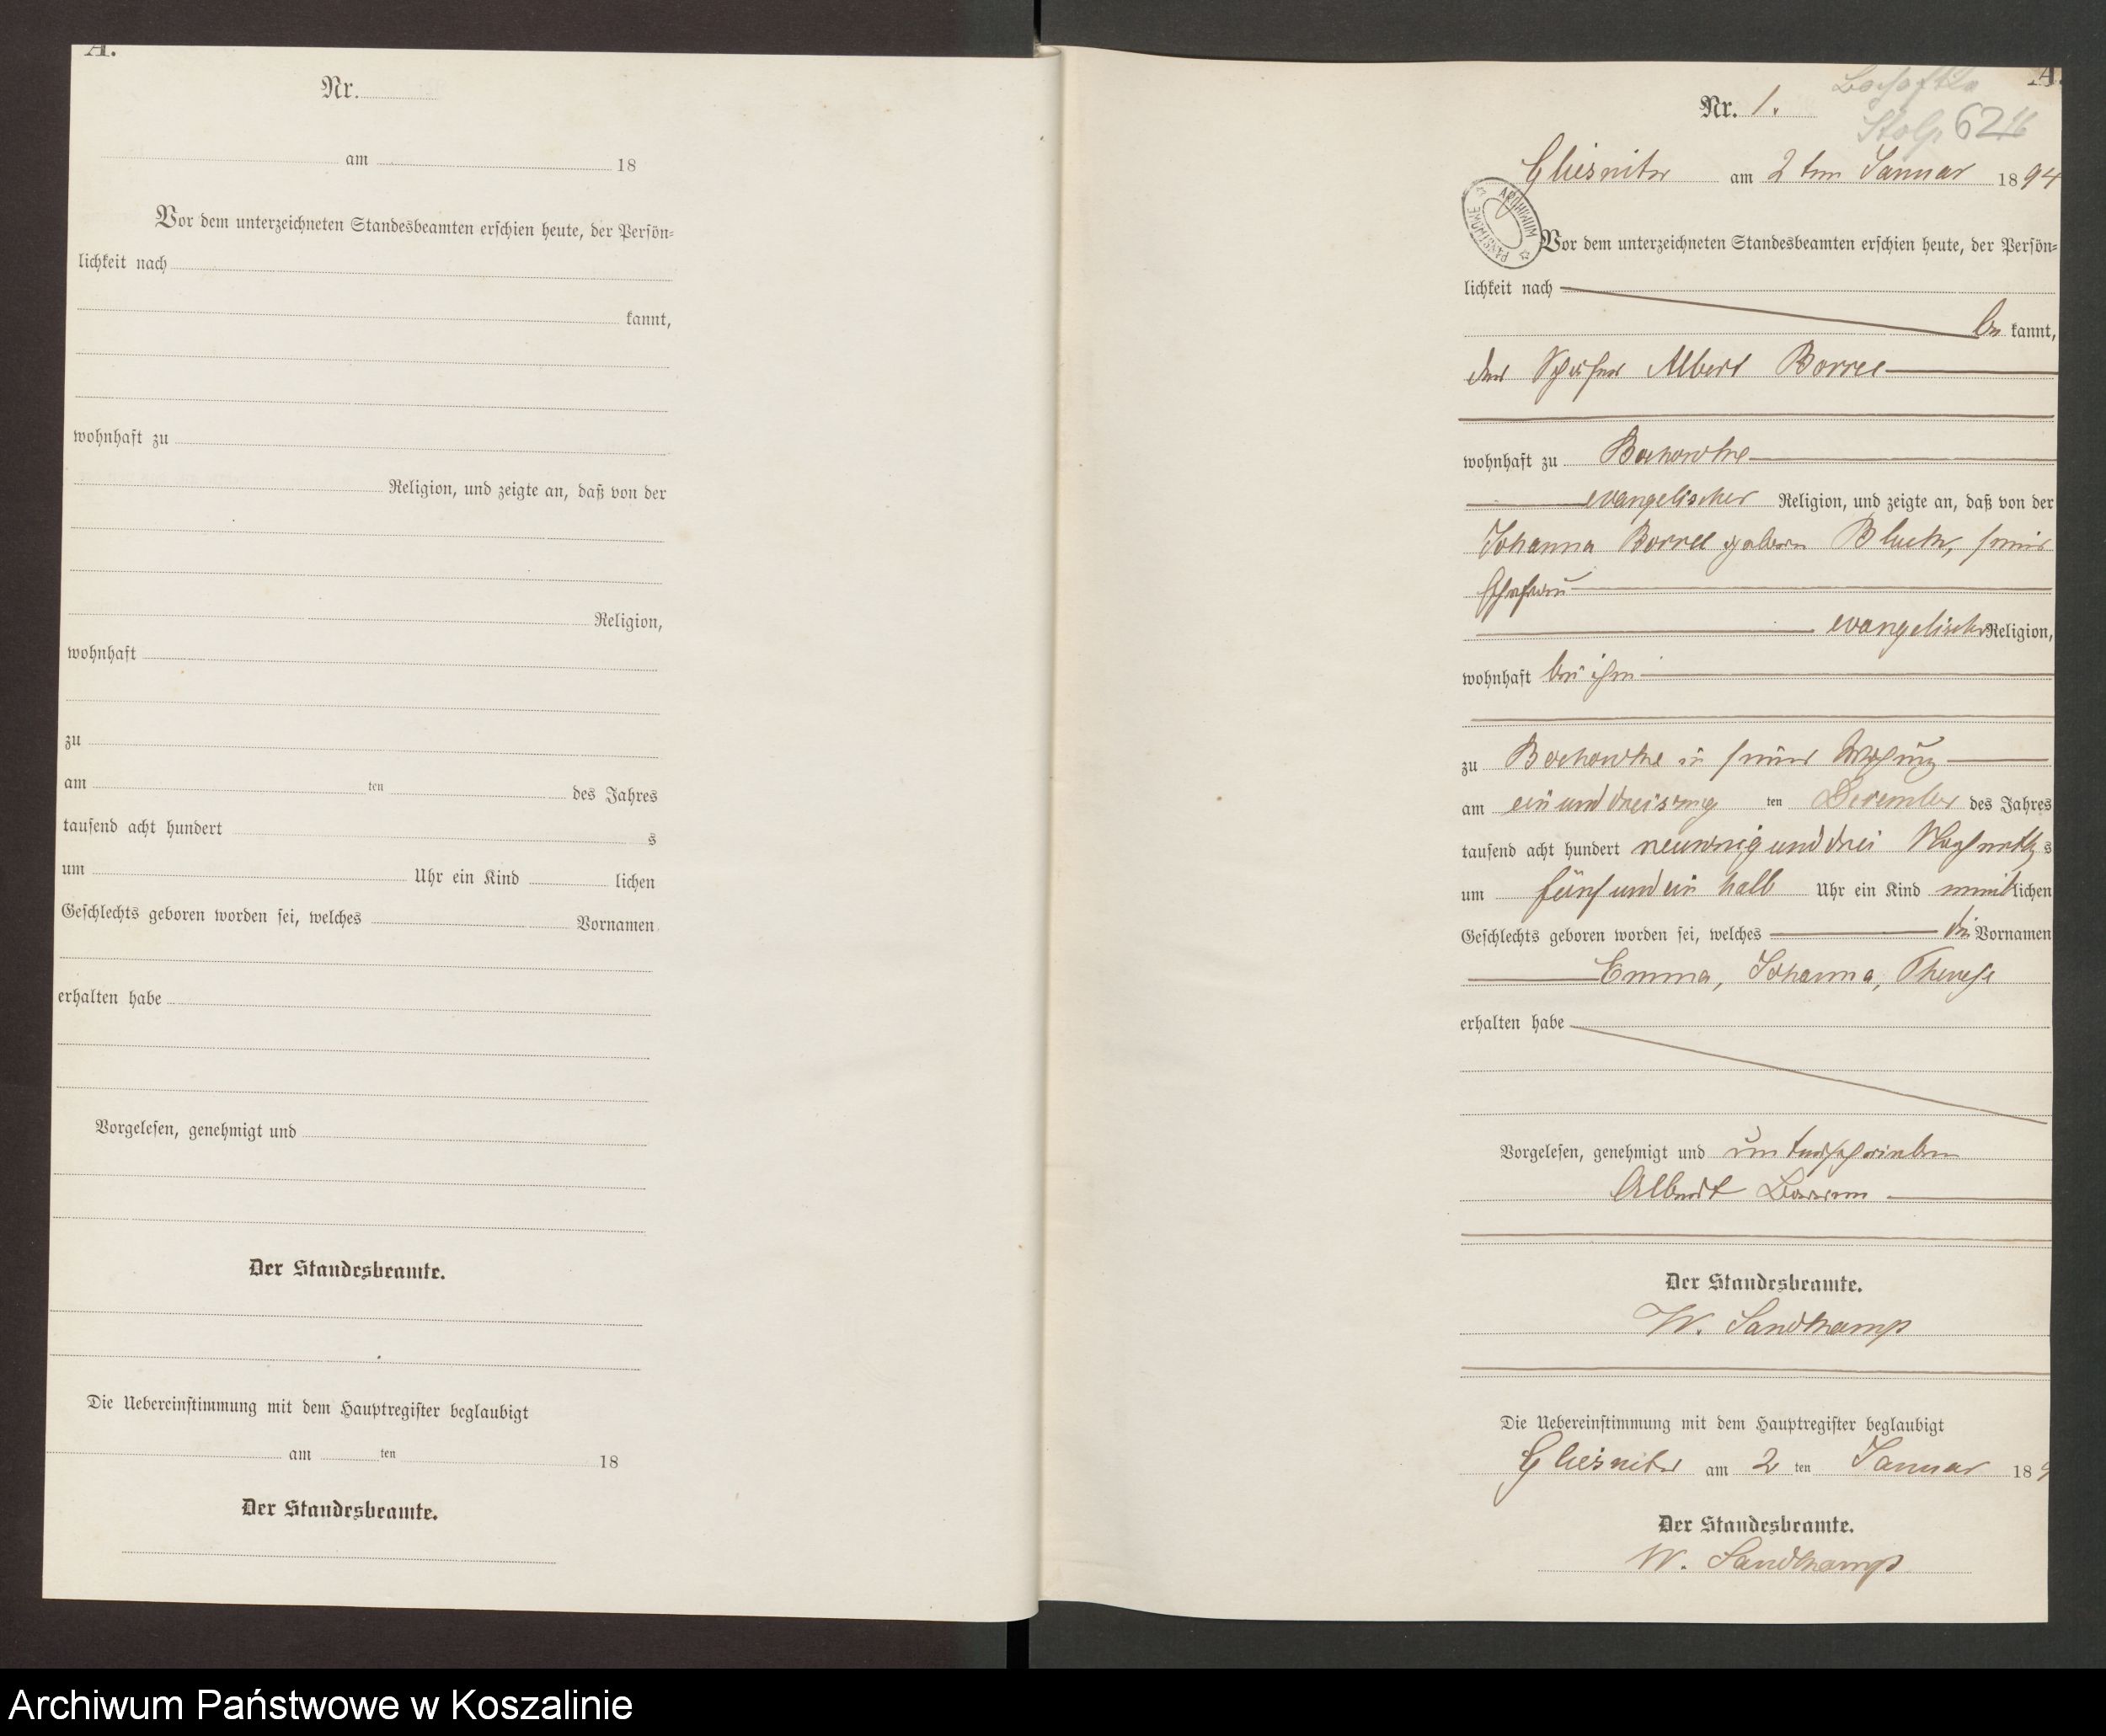 A.
Nr.
am 18
Vor dem unterzeichneten Standesbeamten erschien heute, der Persön=
lichkeit nach
kannt,
wohnhaft zu
Religion, und zeigte an, daß von der
Religion,
wohnhaft
zu
am ten des Jahres
tausend acht hundert s
um Uhr ein Kind lichen
Geschlechts geboren worden sei, welches Vornamen
erhalten habe
Vorgelesen, genehmigt und
Der Standesbeamte.
Die Uebereinstimmung mit dem Hauptregister beglaubigt
am ten 18
Der Standesbeamte.
A.
Nr. 1.
Stolp 62
Gliesnitz am 2ten Januar 1894
ARCHIWUM PAŃSTWOWE
Vor dem unterzeichneten Standesbeamten erschien heute, der Persön=
lichkeit nach
be kannt,
der Schäfer Albert Borree
wohnhaft zu Bochowke
evangelischer Religion, und zeigte an, daß von der
Johanna Borree geboren seiner
Ehefrau
evangelischer Religion,
wohnhaft bei ihm
zu Bochowke in seiner Wohnung
am ein und dreiszig ten December des Jahres
tausend acht hundert neunzig und drei Nachmittags
um fünf und ein halb Uhr ein Kind weiblichen
Geschlechts geboren worden sei, welches die Vornamen
Emma, Johanna, Therese
erhalten habe
Vorgelesen, genehmigt und unterschrieben
Albert
Der Standesbeamte.
W. Sandkamp
Die Uebereinstimmung mit dem Hauptregister beglaubigt
Gliesnitz am 2 ten Januar 189
Der Standesbeamte.
W. Sandkamp
Archiwum Państwowe w Koszalinie